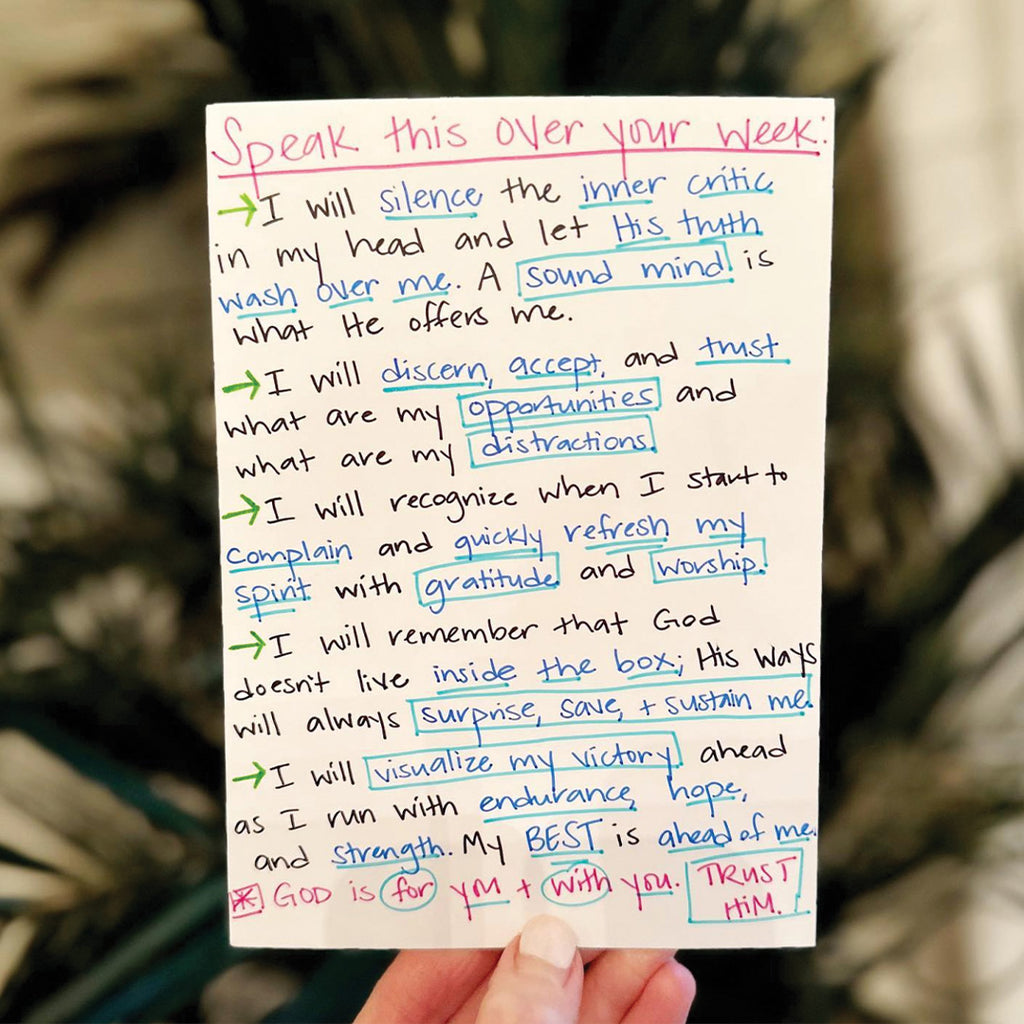 Speak this over your week:
→ I will silence the inner critic
in my head and let His truth
wash over me. A sound mind is
what He offers me.
→ I will discern, accept, and trust
what are my opportunities and
what are my distractions.
→ I will recognize when I start to
complain and quickly refresh my
spirit with gratitude and worship.
→ I will remember that God
doesn't live inside the box; His ways
will always surprise, save, + sustain me.
→ I will visualize my victory ahead
as I run with endurance, hope,
and strength. My BEST is ahead of me.
* GOD is for you + with you. TRUST
HIM.